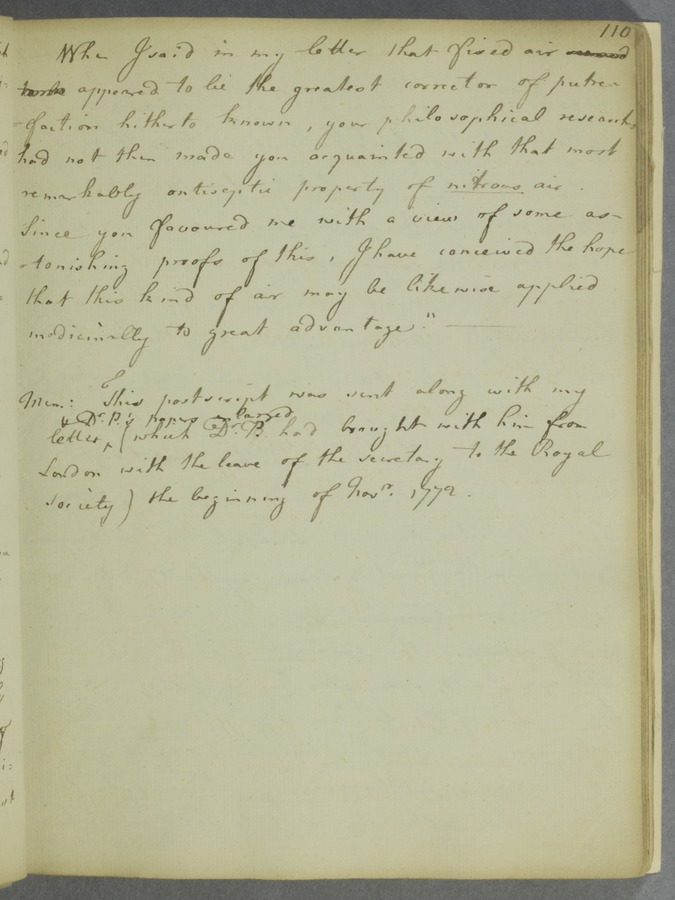 110
When I said in my letter that fixed air
appeared to be the greatest corrector of putre-
-faction hitherto known, your philosophical researches
had not then made you acquainted with that most
remarkably antiseptic property of nitrous air.
Since you favoured me with a view of some as-
-tonishing proofs of this, I have conceived the hope
that this kind of air may be likewise applied
medicinally to great advantage."
Mem: This postscript was sent along with my
& Dr. P.'s papers enlarged
letter, (which Dr. P. had brought with him from
London with the leave of the secretary to the Royal
Society) the beginning of Novr. 1772.